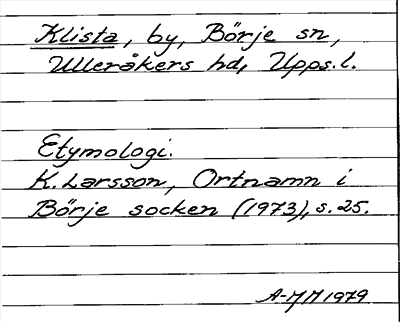 Klista, by, Börje sn,
Ulleråkers hd, Upps. l.
Etymologi.
K. Larsson, Ortnamn i
Börje socken (1973), s. 25.
A-MM 1979